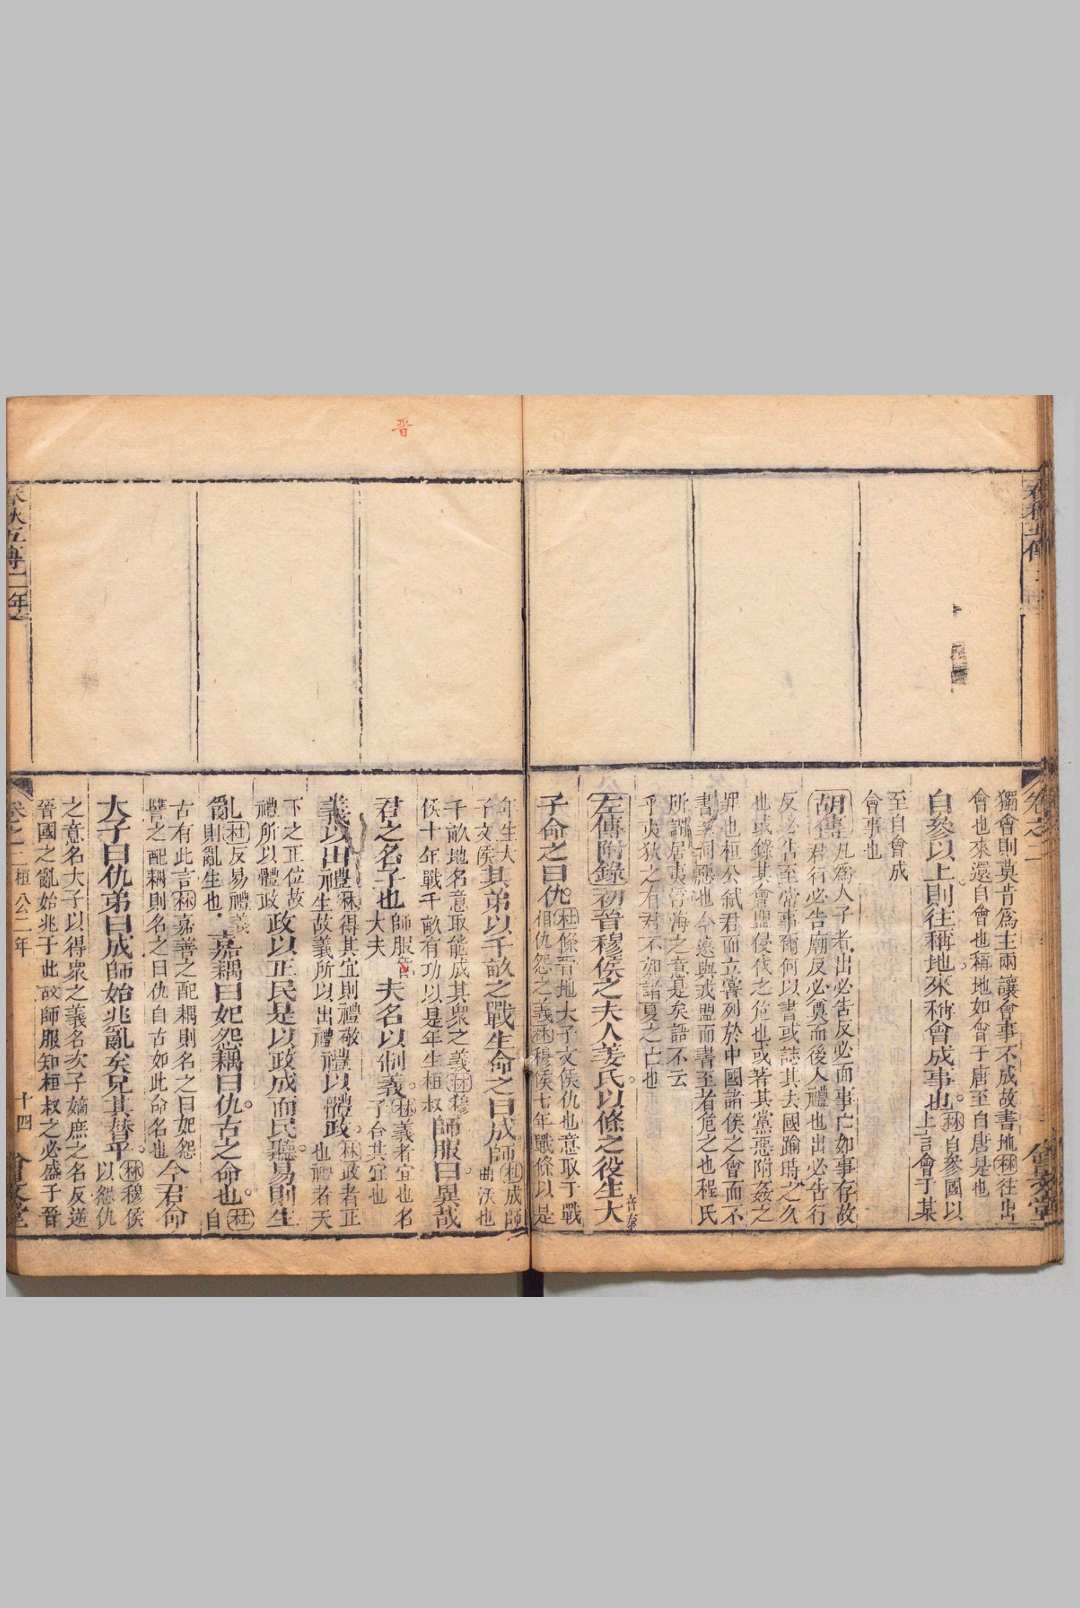 獨會則莫肯爲主兩讓會事不成故書地林往出
會也來還自會也稱地如會于唐至自唐是也
自參以上則往稱地來稱會成事也林自參國以
上言會于某
至自會成
會事也
胡傳凡爲人子者出必告反必面事亡如事存故
君行必告廟反必奠而後入禮也出必告行
反必告至常事爾何以書或誌其去國踰時之久
也或錄其會盟侵伐之危也或著其黨惡附姦之
罪也桓公弑君而立嘗列於中國諸侯之會而不
書至同惡也今遠與戎盟而書至者危之也程氏
所謂居夷浮海之意是矣語不云
乎夷狄之有君不如諸夏之亡也
左傳附錄初晉穆侯之夫人姜氏以條之役生大
子命之曰仇杜條晉地大子文侯仇也意取于戰
相仇怨之義林穆侯七年戰條以是
年生大
子文侯其弟以千畝之戰生命之曰成師杜成師
曲沃也
千畝地名意取能成其衆之義林穆
侯十年戰千畝有功以是年生桓叔師服曰異哉
君之名子也師服晉
大夫夫名以制義林義者宜也名
子合其宜也
義以出禮林得其宜則禮敬
生故義所以出禮禮以體政林政者正
也禮者天
下之正位故
禮所以體政政以正民是以政成而民聽易則生
亂杜反易禮義
則亂生也嘉耦曰妃怨耦曰仇古之命也杜
自
古有此言林嘉善之配耦則名之曰妃怨
讐之配耦則名之曰仇自古如此命名也今君命
大子曰仇弟曰成師始兆亂矣兄其替乎林穆侯
以怨仇
之意名大子以得衆之義名次子嫡庶之名反逆
晉國之亂始兆于此故師服知桓叔之必盛于晉
卷之二桓公二年
十四
會文堂
春秋左傳二年
晉